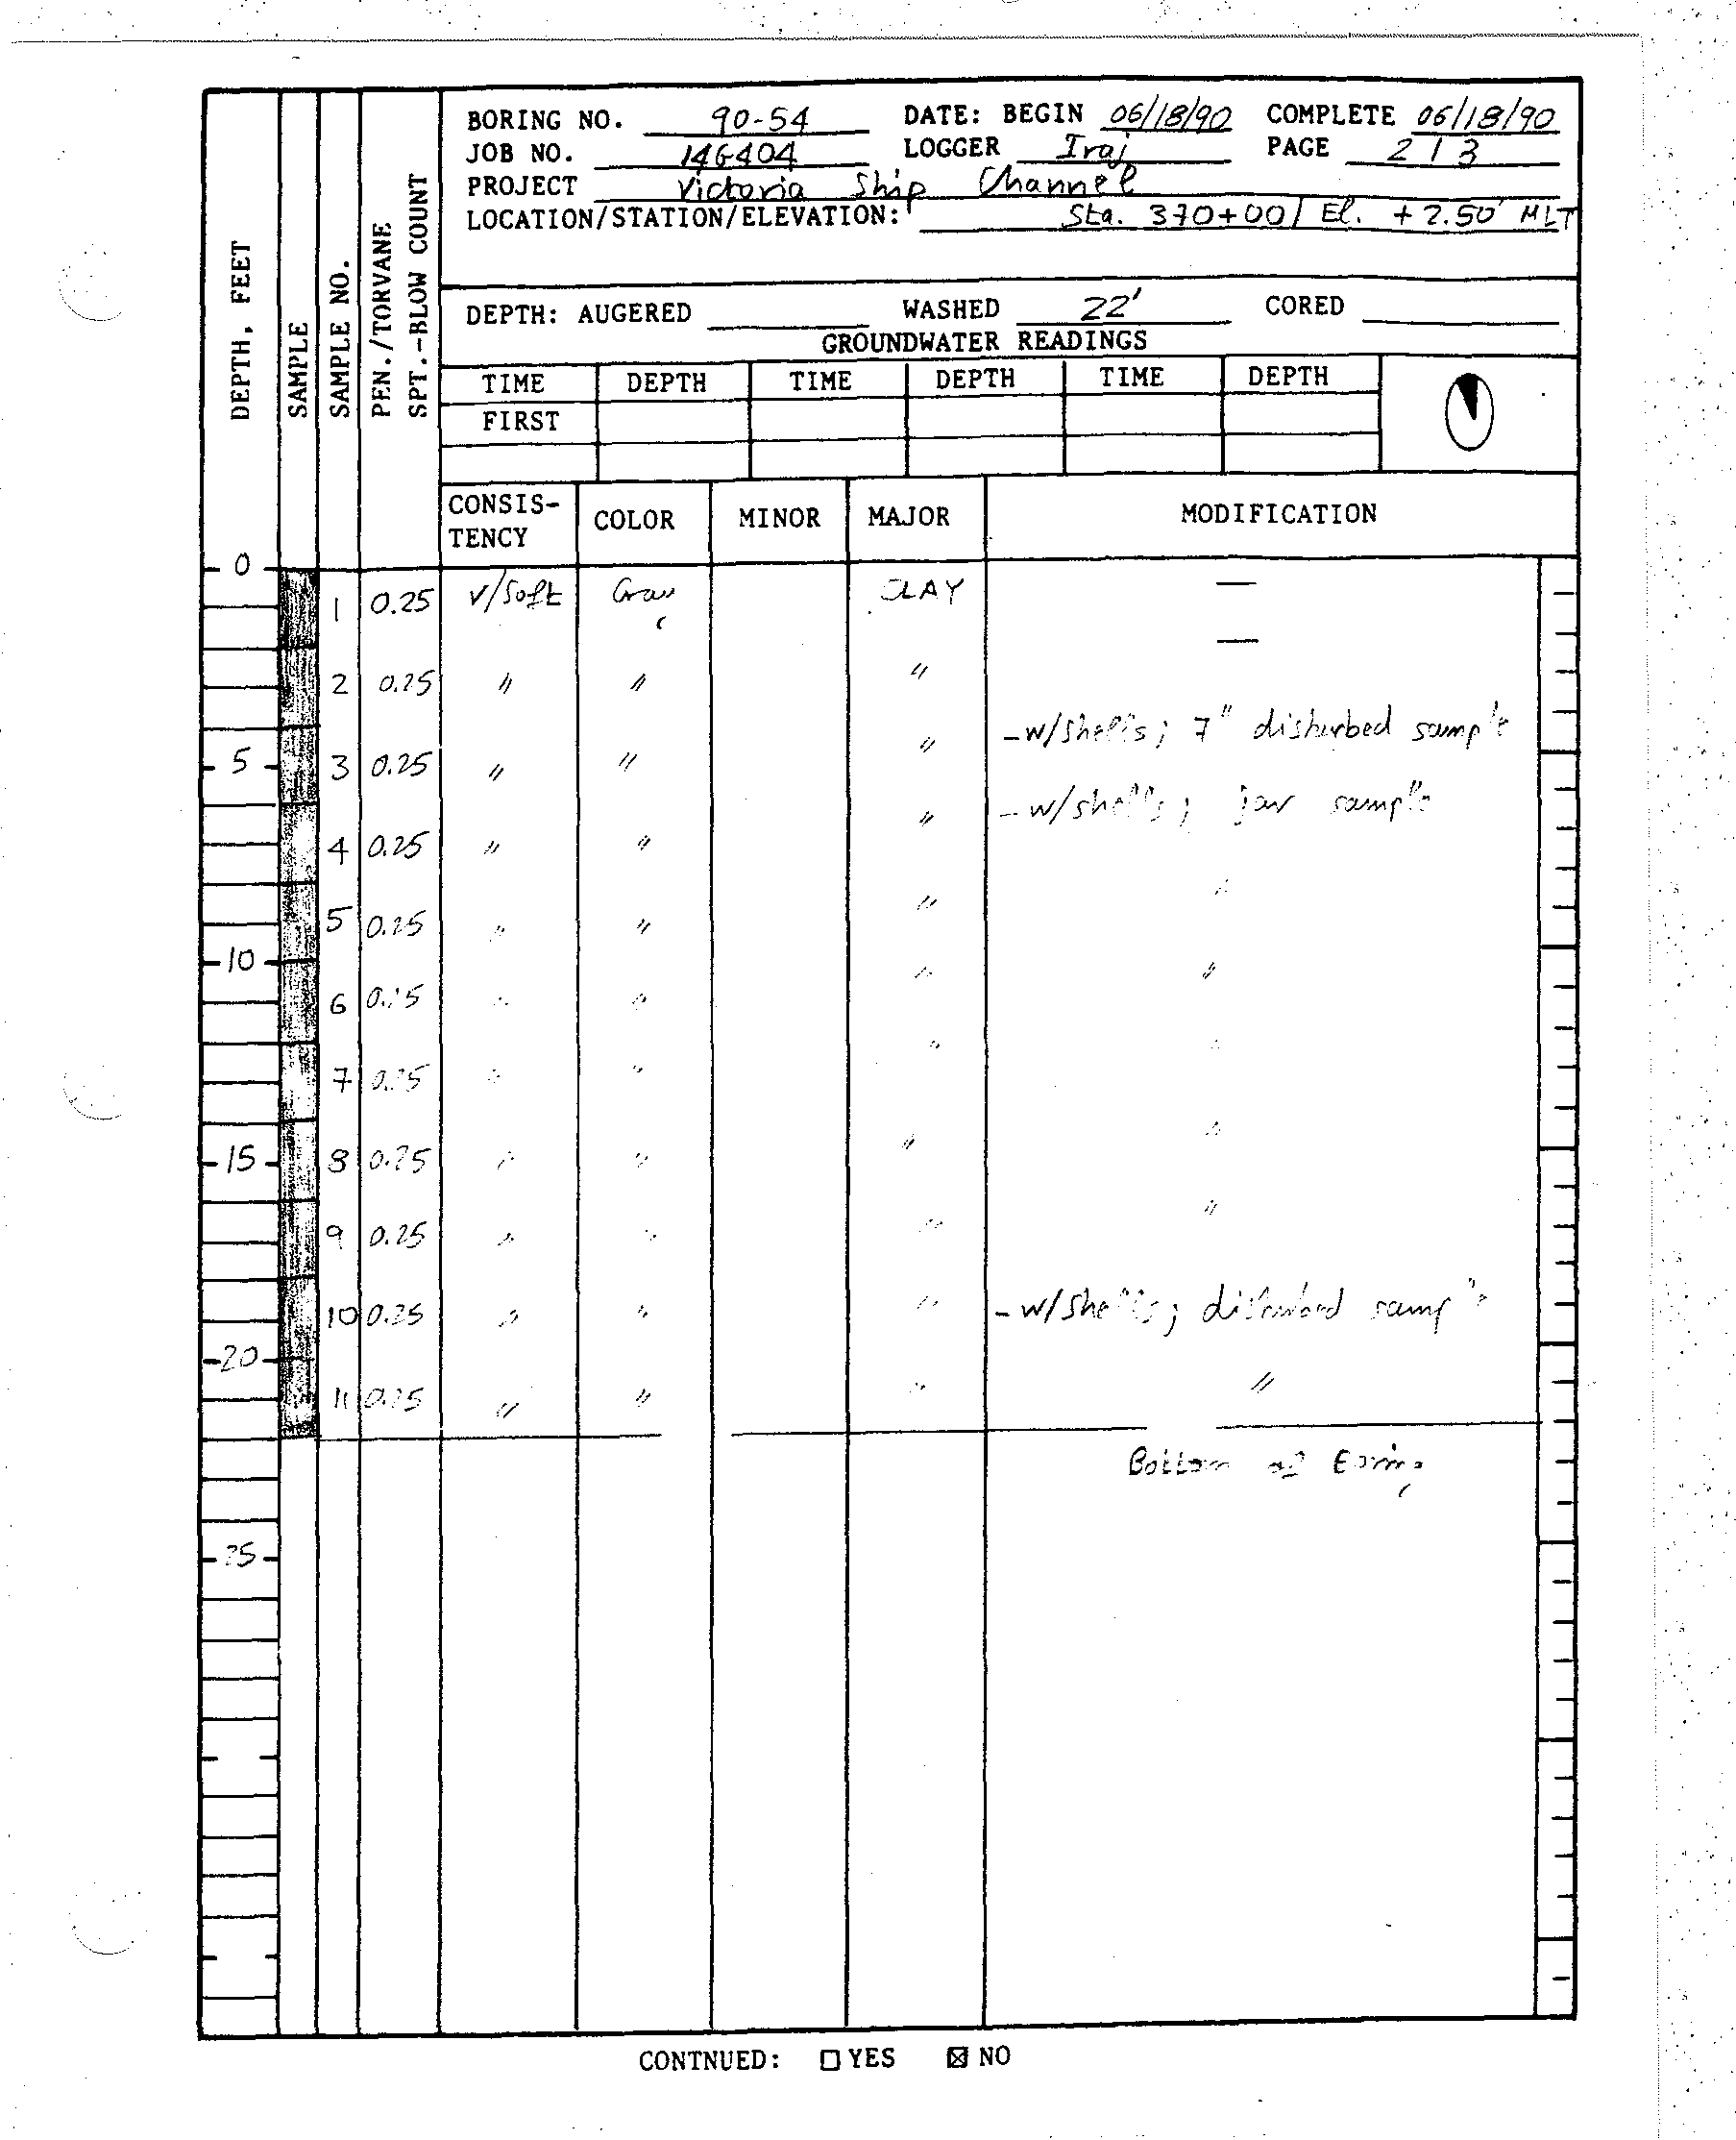 BORING NO. 90-54 DATE: BEGIN 06/18/90 COMPLETE 06/18/90
JOB NO. 14G404 LOGGER Iraj PAGE 2/3
PROJECT Victoria Ship Channel
LOCATION/STATION/ELEVATION: Sta. 370+00/ El. +2.50' MLT
DEPTH, FEET
SAMPLE
SAMPLE NO.
PEN./TORVANE
SPT.-BLOW COUNT
DEPTH: AUGERED WASHED 22' CORED
GROUNDWATER READINGS
TIME DEPTH TIME DEPTH TIME DEPTH
FIRST
CONSIS-
TENCY COLOR MINOR MAJOR MODIFICATION
0
1 0.25 V/Soft Gray CLAY —
—
2 0.25 " " "
-w/shells; 7" disturbed sample
5 3 0.25 " " "
-w/shells; jar sample
4 0.25 " " "
5 0.25 " " " "
10
6 0.25 " " " "
7 0.25 " " " "
15 8 0.25 " " " "
9 0.25 " " " "
10 0.25 " " " -w/shells; disturbed sample
20
11 0.25 " " " "
Bottom of Boring
25
CONTNUED: ☐ YES ☒ NO